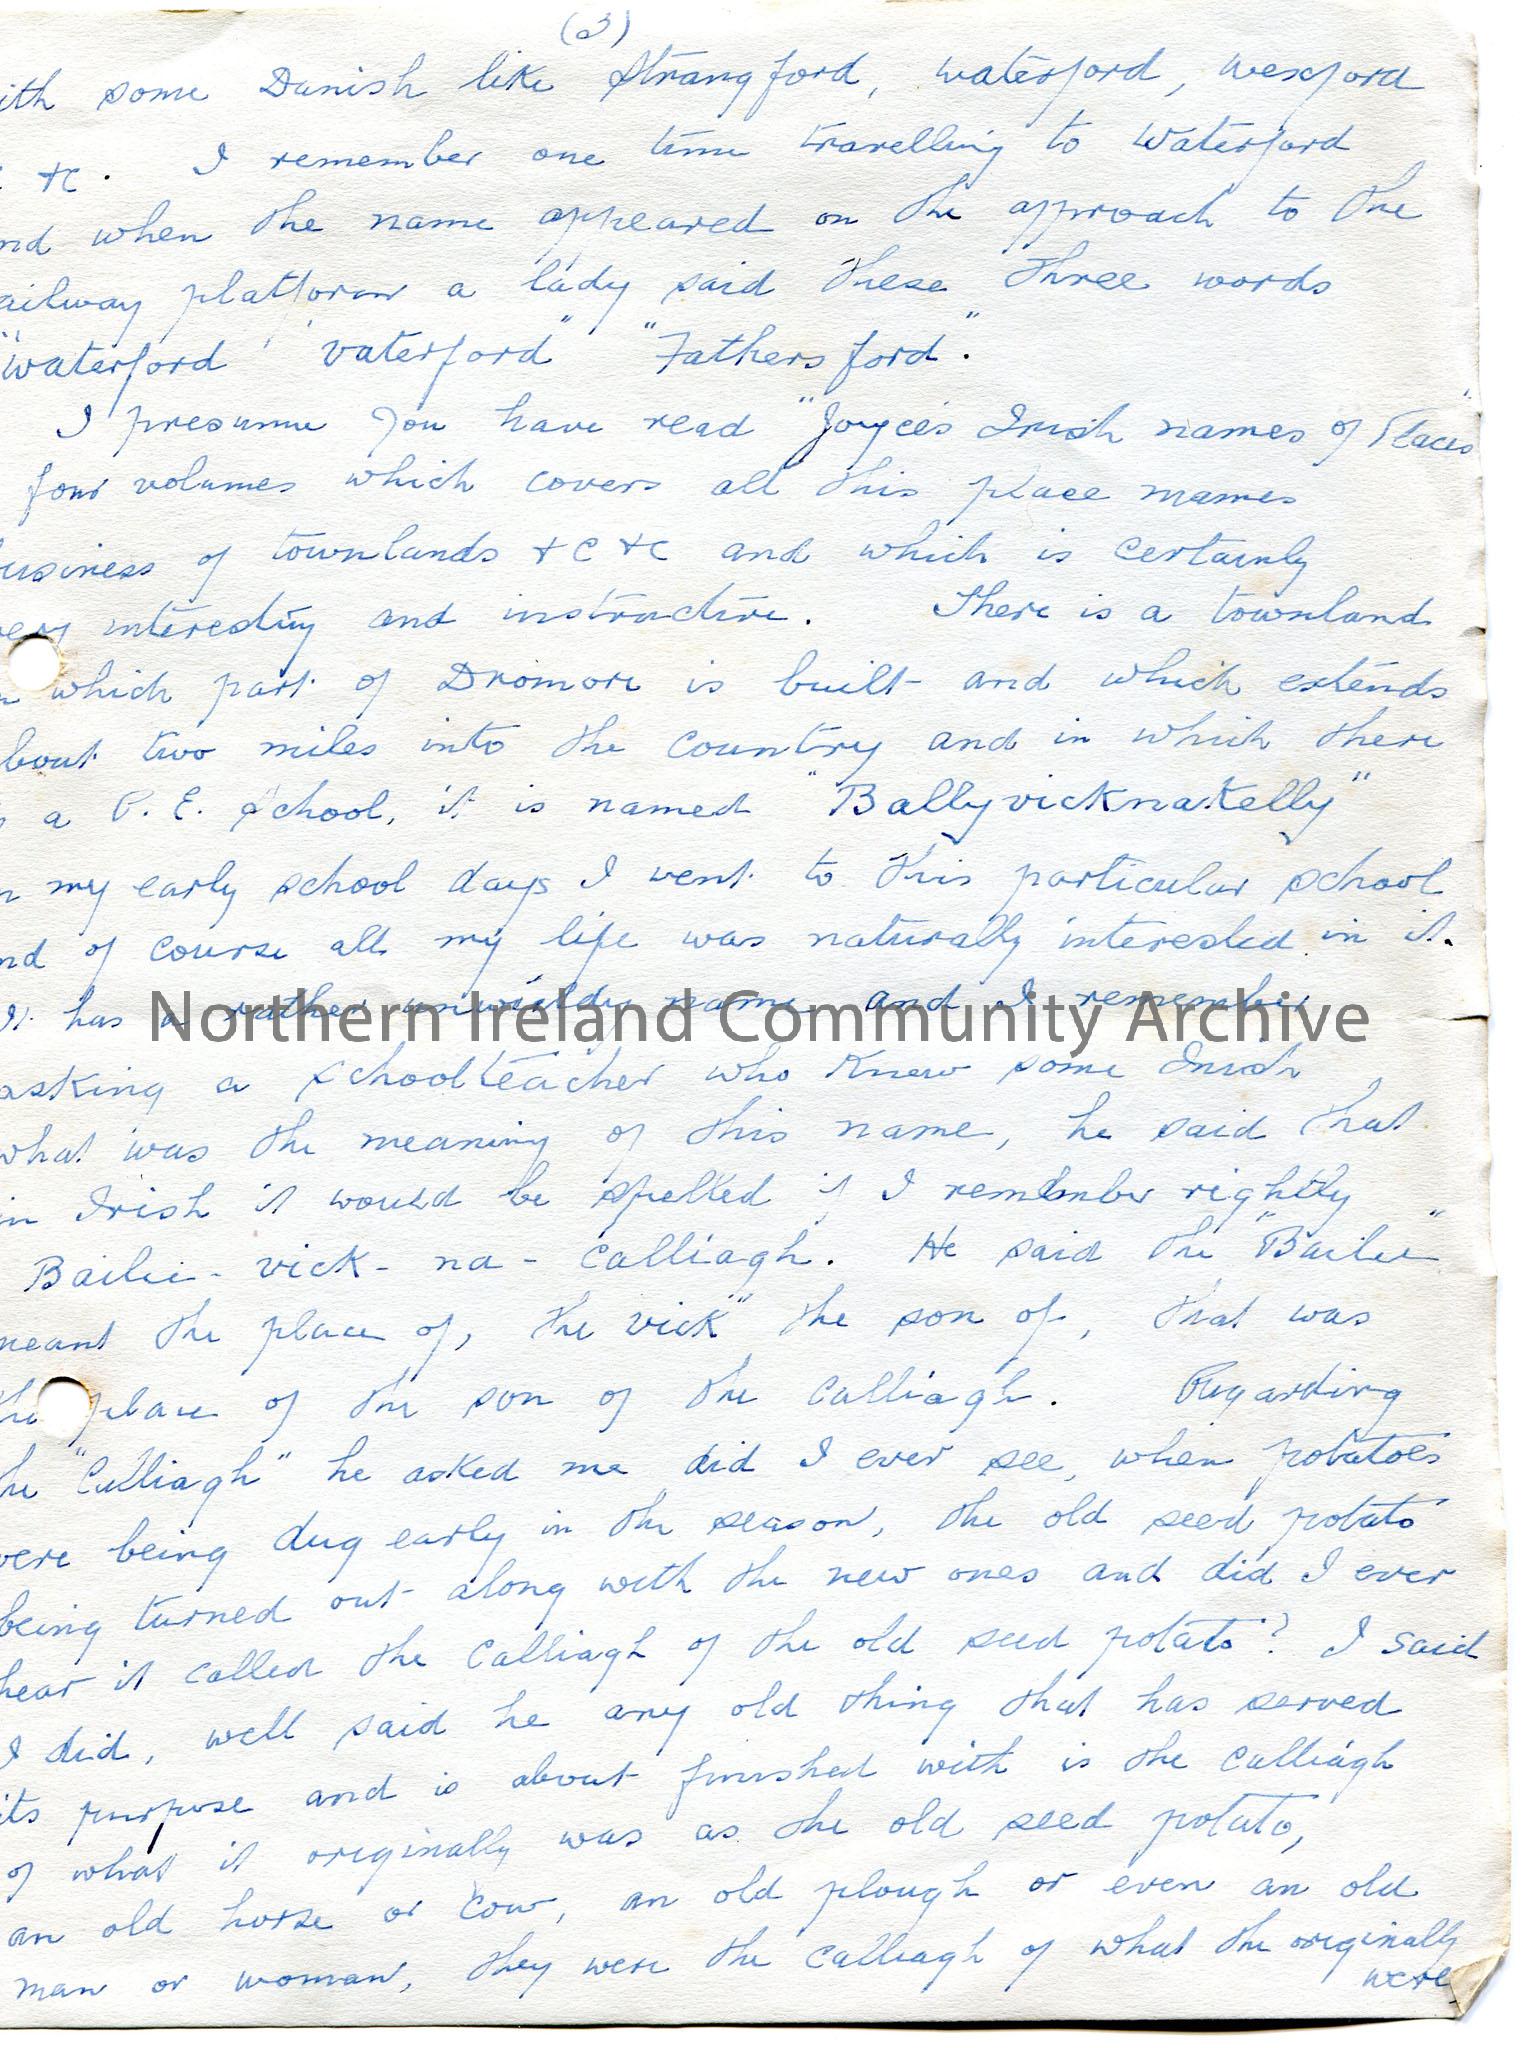 (3)
ith some Danish like Strangford, Waterford, Wexford
&c. I remember one time travelling to Waterford
nd when the name appeared on the approach to the
ailway platform a lady said these three words
"Waterford" "Vaterford" "Fathersford".
I presume you have read "Joyce's Irish names of Places"
four volumes which covers all this place names
usiness of townlands &c &c and which is certainly
ery interesting and instructive. There is a townland
n which part of Dromore is built and which extends
bout two miles into the country and in which there
s a P. E. School, it is named "Ballyvicknakelly"
n my early school days I went to this particular school
nd of course all my life was naturally interested in it.
It has a rather unwieldy name and I remember
Northern Ireland Community Archive
asking a schoolteacher who knew some Irish
what was the meaning of this name, he said that
in Irish it would be spelled if I remember rightly
Bailie - vick - na - Calliagh. He said the "Bailie"
meant the place of, the vick" the son of, that was
the place of the son of the Calliagh. Regarding
he "Calliagh" he asked me did I ever see, when potatoes
were being dug early in the season, the old seed potato
being turned out along with the new ones and did I ever
hear it called the Calliagh of the old seed potato? I said
I did, well said he any old thing that has served
its purpose and is about finished with is the Calliagh
of what it originally was as the old seed potato,
an old horse or cow, an old plough or even an old
man or woman, they were the Calliagh of what the originally
were